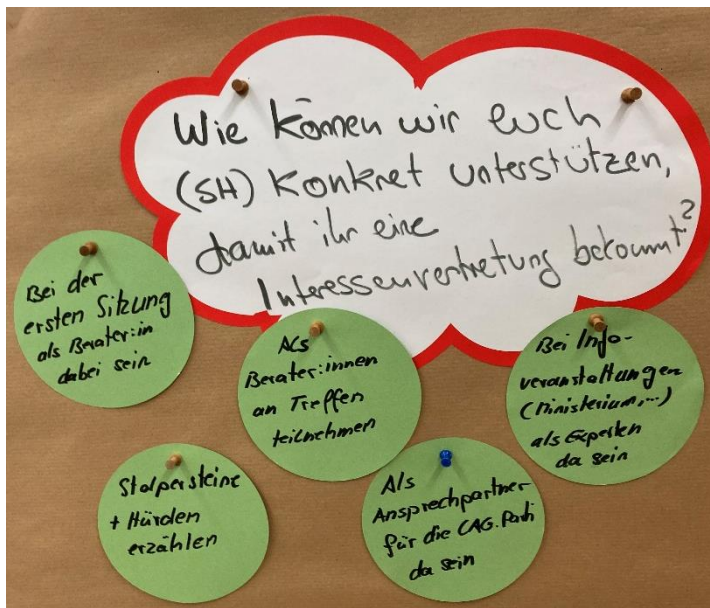 Wie können wir euch
(SH) Konkret unterstützen,
damit ihr eine
Interessenvertretung bekommt?
Bei der
ersten Sitzung
als Berater:in
dabei sein
Als
Berater:innen
an Treffen
teilnehmen
Bei Info-
veranstaltungen
(Ministerium,...)
als Experten
da sein
Stolpersteine
+ Hürden
erzählen
Als
Ansprechpartner
für die LAG.Parti
da sein